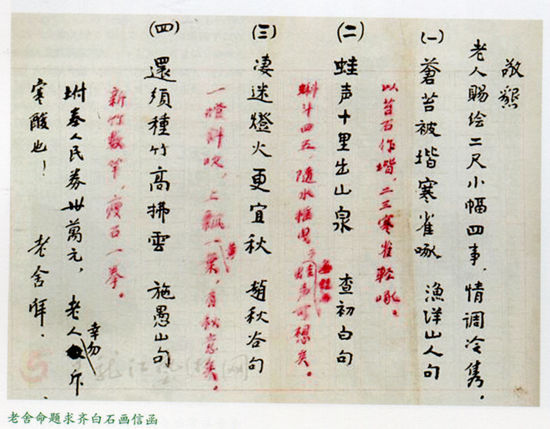 敬懇
老人賜绘二尺小幅四事，情调冷隽。
(一) 蒼苔被堦寒雀啄 漁洋山人句
以苔石作堦，二三寒雀輕啄。
(二) 蛙声十里出山泉 查初白句
蝌斗四五，隨水摇曳；蛙声可想矣。
(三) 凄迷燈火更宜秋 趙秋谷句
一燈斜吹，上飄一黄葉，有秋意矣。
(四) 還須種竹高拂雲 施愚山句
新竹數竿，瘦石一拳。
坿奉人民券卅萬元，老人幸勿斥
寒酸也！ 老舍拜．
老舍命题求齐白石画信函